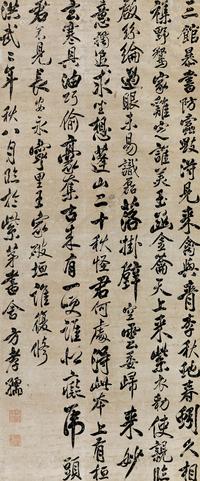 三館暴書防蠹毀得見来禽與青李秋蛇春蚓久相
襍野鶩家雞定誰美玉函金籥天上来紫衣勅使親臨
啟紛綸過眼未易識磊落掛壁空雲委歸来妙
意獨追求坐想蓬山二十秋怪君何處得此本上有桓
玄寒具油巧偷豪奪古来有一笑誰似癡虎頭
君不見長安永寧里王家破垣誰復修
洪武二年秋八月臨於紫芝書舍方孝孺